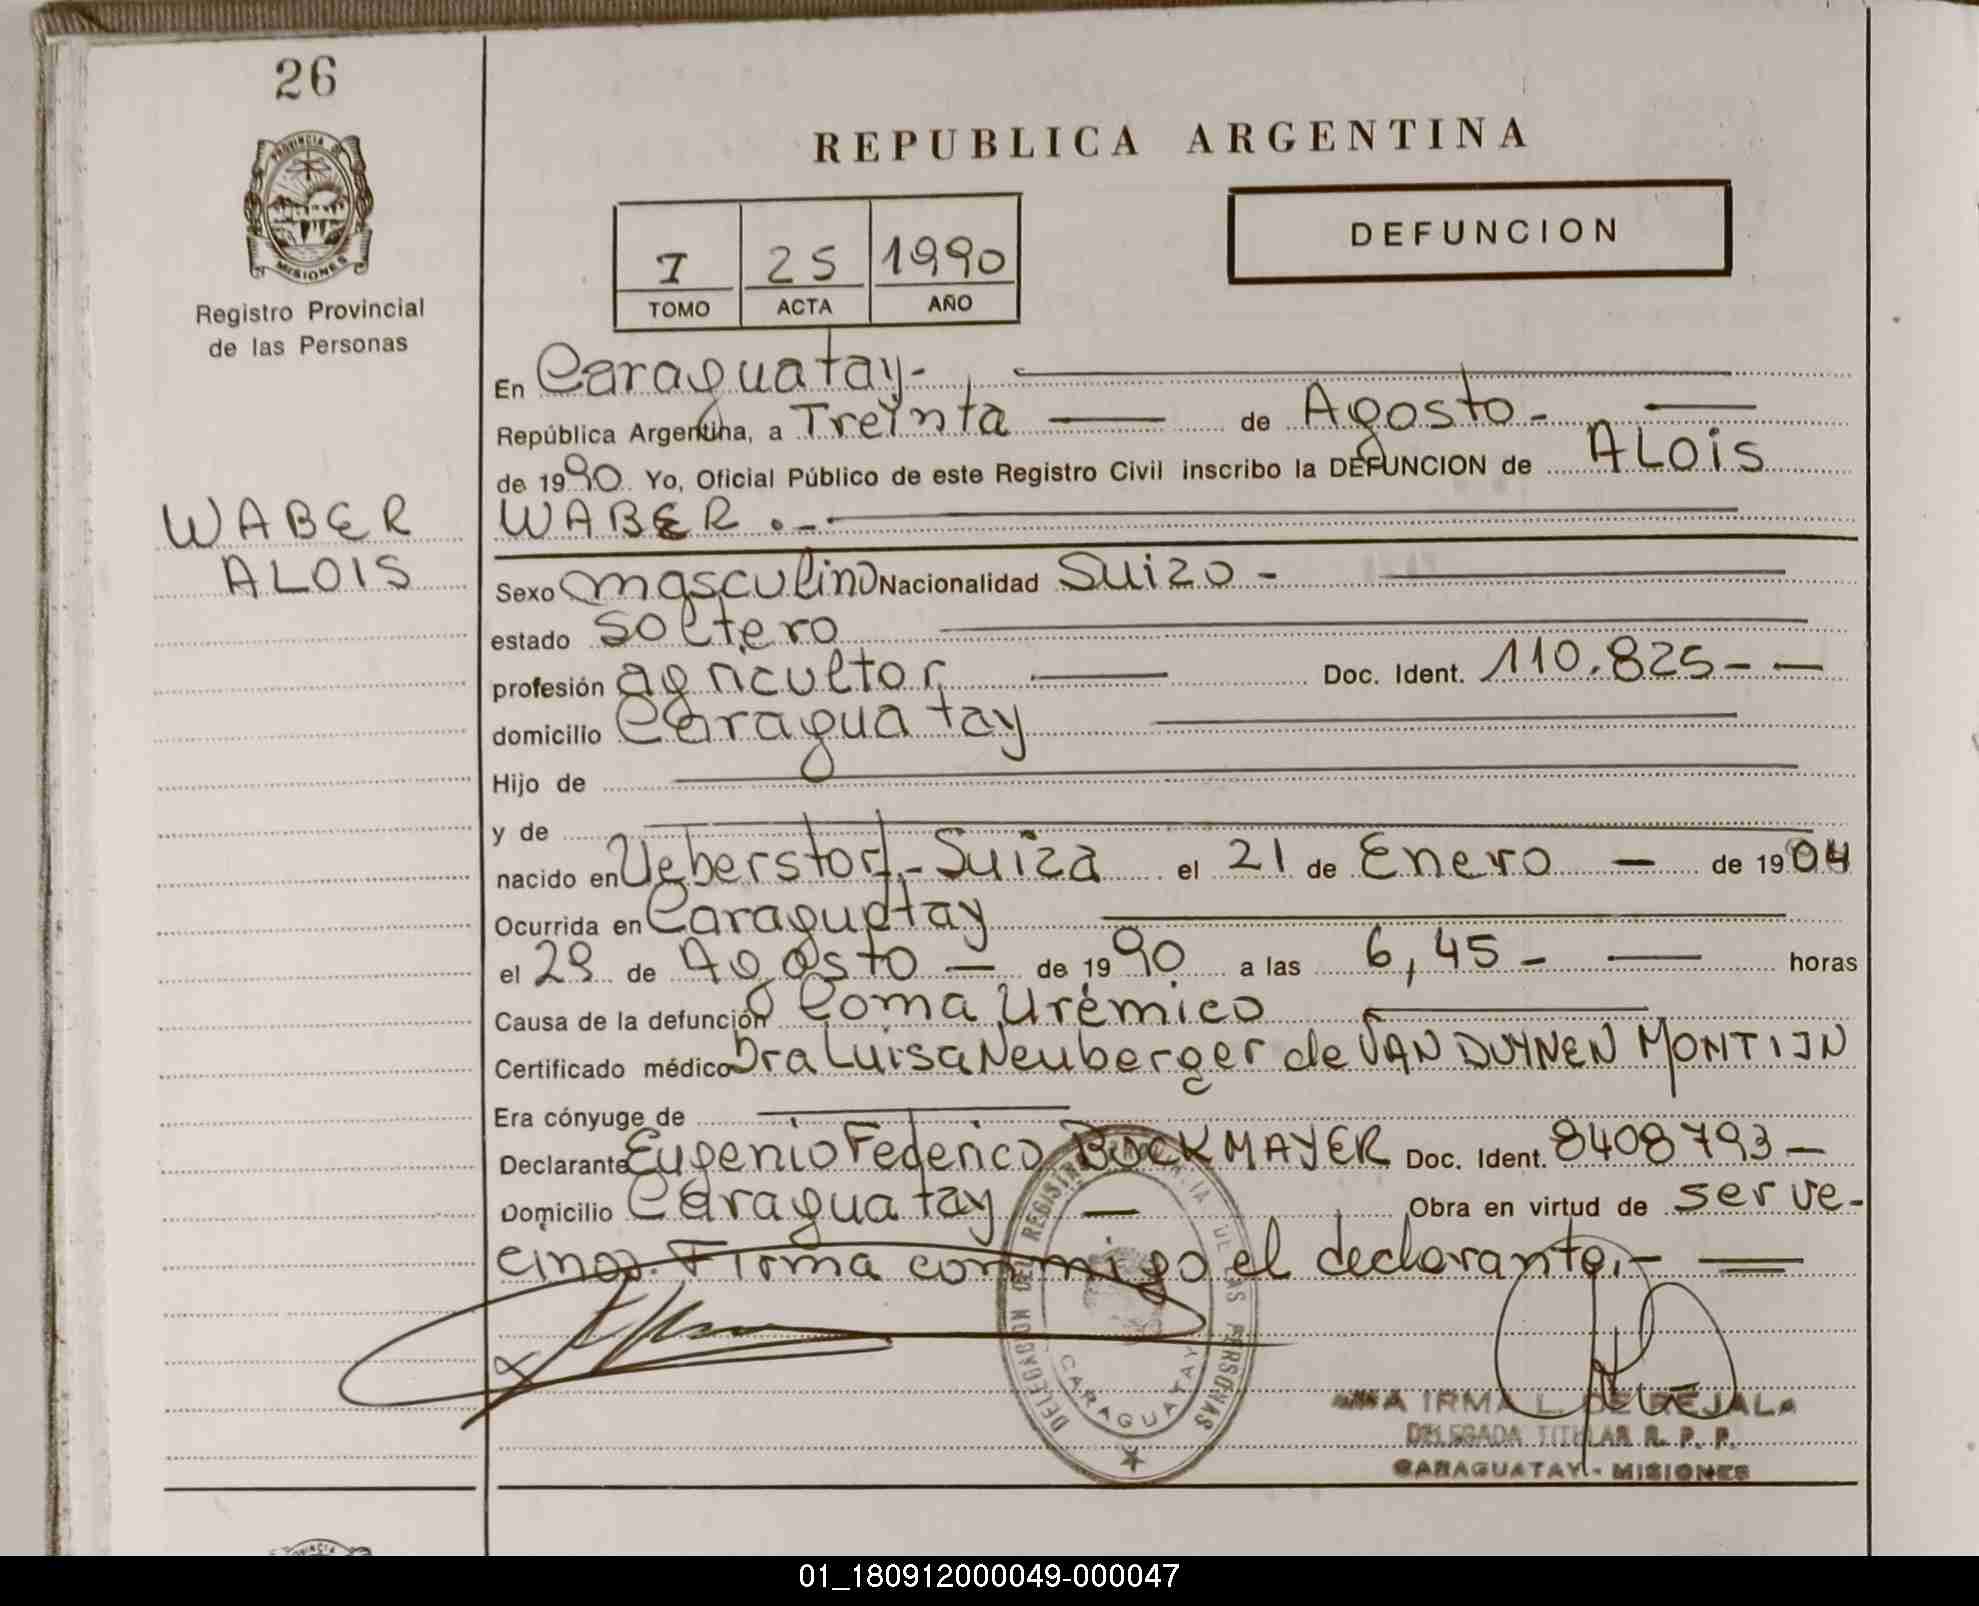 26
PROVINCIA DE
MISIONES
Registro Provincial
de las Personas
WABER
ALOIS
REPUBLICA ARGENTINA
I 25 1990
TOMO ACTA AÑO
DEFUNCION
En Caraguatay-
República Argentina, a Treinta de Agosto-
de 1990 Yo, Oficial Público de este Registro Civil inscribo la DEFUNCION de ALOIS
WABER.-
Sexo masculino Nacionalidad Suizo-
estado soltero
profesión agricultor Doc. Ident. 110.825--
domicilio Caraguatay
Hijo de
y de
nacido en Ueberstorf-Suiza el 21 de Enero - de 1904
Ocurrida en Caraguatay
el 29 de Agosto - de 1990 a las 6,45- horas
Causa de la defunción Coma Urémico
Certificado médico Dra Luisa Neuberger de VAN DUYNEN MONTIJN
Era cónyuge de
Declarante Eugenio Federico BOCKMAYER Doc. Ident. 8408793-
Domicilio Caraguatay - Obra en virtud de ser ve-
cino. Firma conmigo el declarante.-
DELEGACION DEL REGISTRO PROVINCIAL DE LAS PERSONAS
CARAGUATAY
IRMA L. DE REJALA
DELEGADA TITULAR R. P. P.
CARAGUATAY - MISIONES
PROVINCIA
01_180912000049-000047